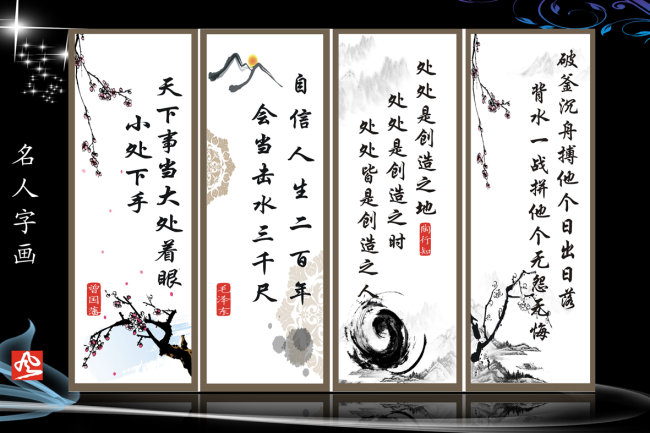 名人字画
天下事当大处着眼
小处下手
曾国藩
自信人生二百年
会当击水三千尺
毛泽东
处处是创造之地
处处是创造之时
处处皆是创造之人
陶行知
破釜沉舟搏他个日出日落
背水一战拼他个无怨无悔